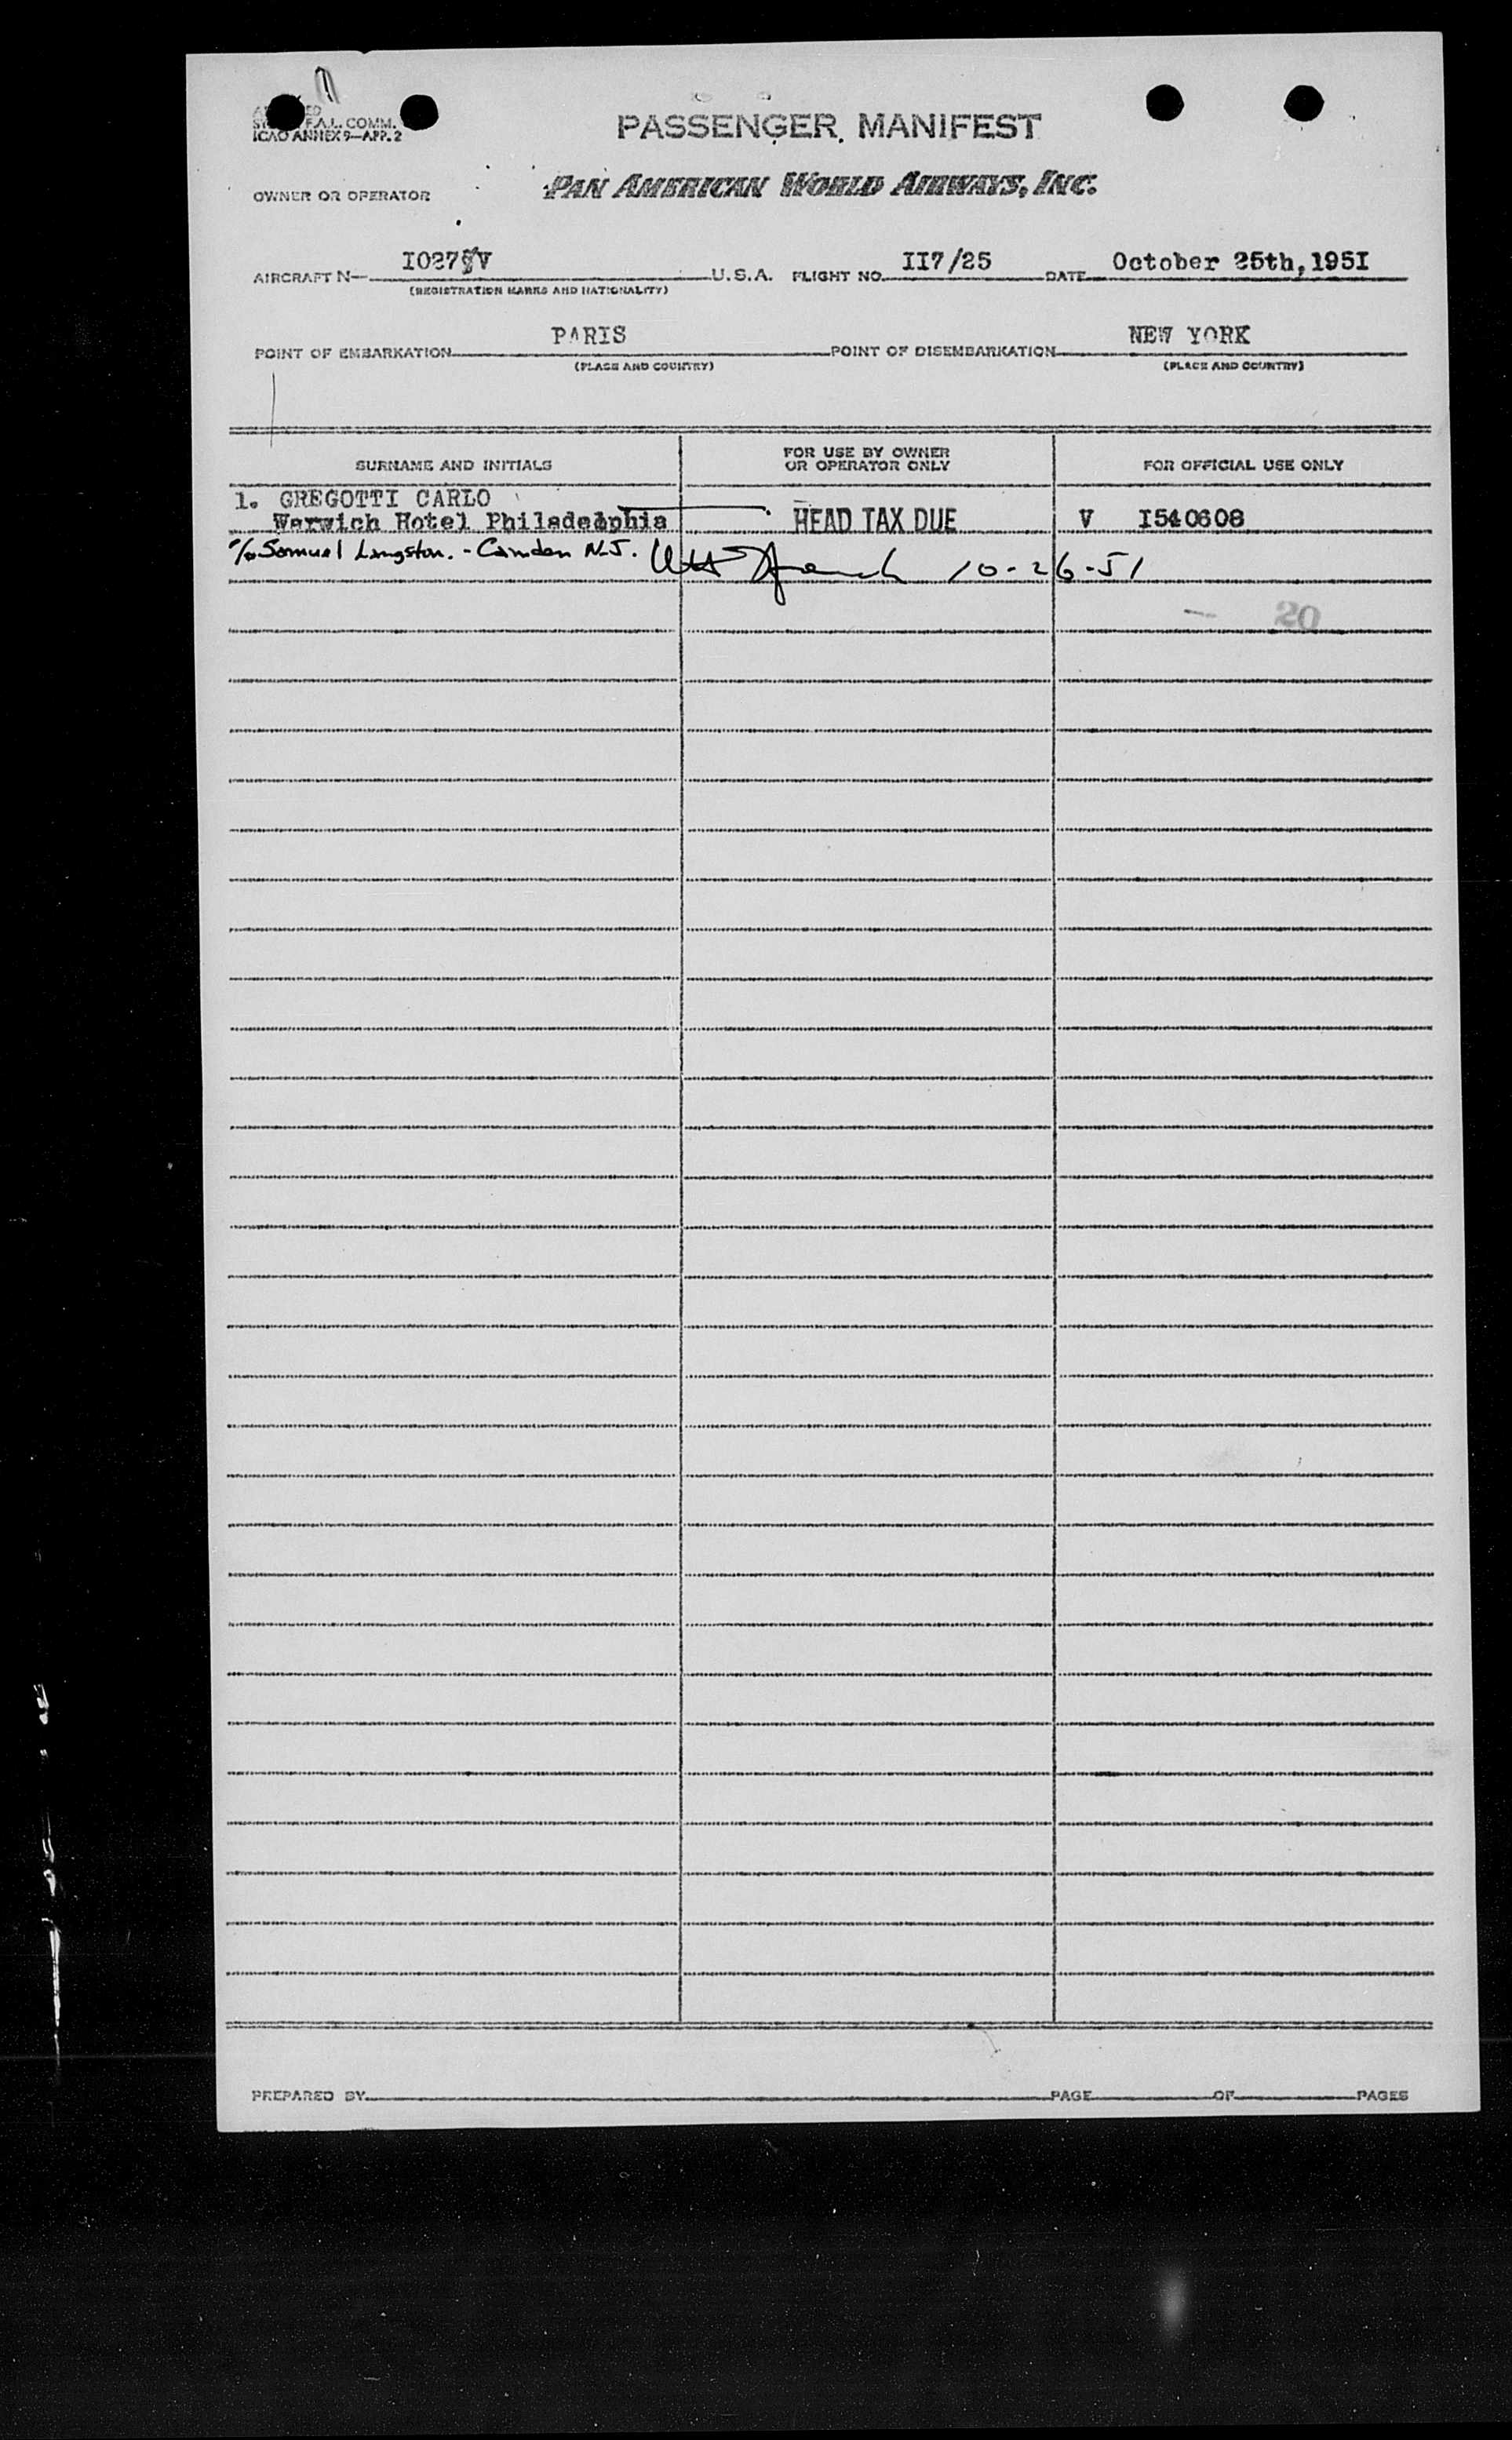 F.A.L. COMM.
ICAO ANNEX 9—APP. 2
PASSENGER MANIFEST
OWNER OR OPERATOR PAN AMERICAN WORLD AIRWAYS, INC.
AIRCRAFT N— U.S.A. FLIGHT NO. II7/25 DATE October 25th,195I
(REGISTRATION MARKS AND NATIONALITY)
POINT OF EMBARKATION PARIS POINT OF DISEMBARKATION NEW YORK
(PLACE AND COUNTRY) (PLACE AND COUNTRY)
SURNAME AND INITIALS FOR USE BY OWNER OR OPERATOR ONLY FOR OFFICIAL USE ONLY
1. GREGOTTI CARLO
Warwich Hotel Philadelphia HEAD TAX DUE V I540608
c/o Samuel Langston. - Camden N.J. 10-26-51
20
PREPARED BY PAGE OF PAGES